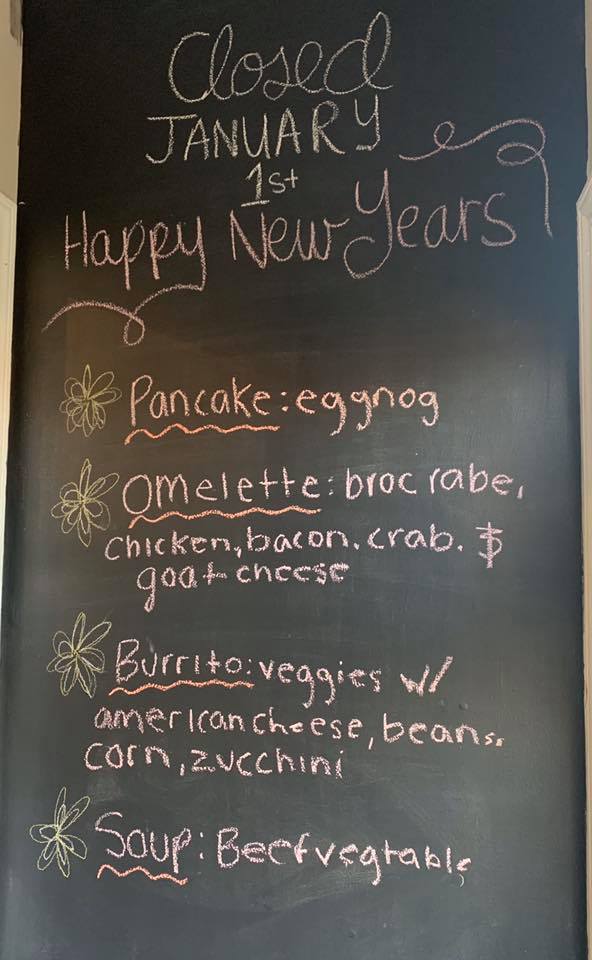 Closed
JANUARY
1st
Happy New Years
Pancake: eggnog
Omelette: broc rabe,
chicken, bacon, crab, &
goat cheese
Burrito: veggies w/
american cheese, beans,
corn, zucchini
Soup: Beef vegtable